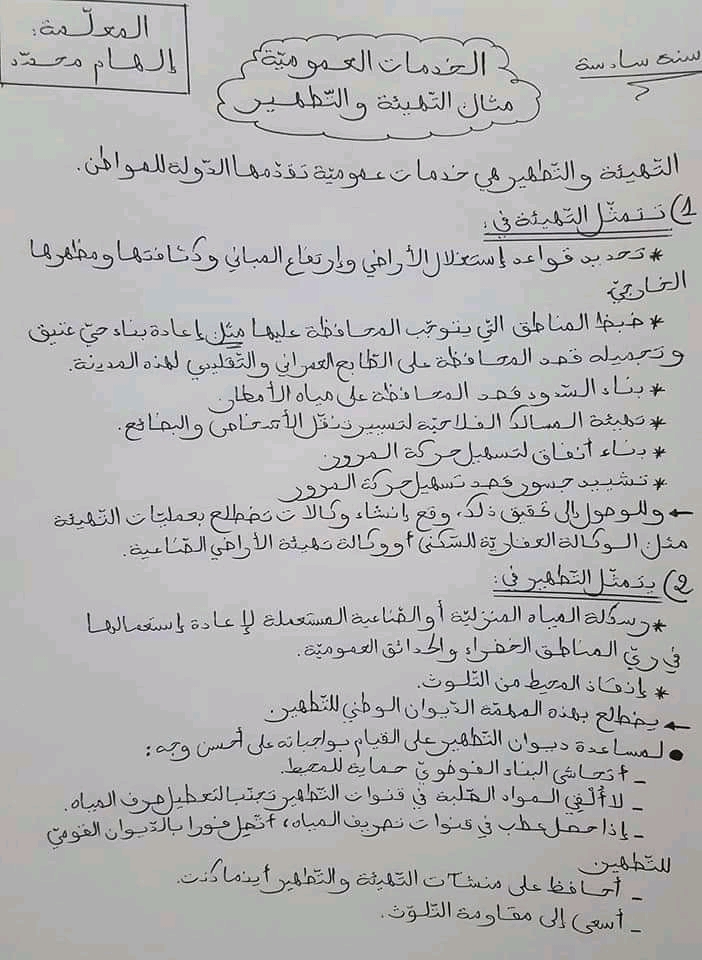 المعلّمة:
إلهام محمّد
سنة سادسة
الخدمات العموميّة
مثال التّهيئة والتّطهير
التّهيئة والتّطهير هي خدمات عموميّة تقدّمها الدّولة للمواطن.
1) تتمثّل التّهيئة في:
* تحديد قواعد إستغلال الأراضي وإرتفاع المباني وكثافتها ومظهرها
الخارجيّ
* ضبط المناطق التّي يتوجّب المحافظة عليها مثل إعادة بناء حيّ عتيق
وتجميله قصد المحافظة على الطّابع العمراني والتّقليدي لهذه المدينة.
* بناء السّدود قصد المحافظة على مياه الأمطار.
* تهيئة المسالك الفلاحيّة لتيسير تنقّل الأشخاص والبضائع.
* بناء أنفاق لتسهيل حركة المرور.
* تشييد جسور قصد تسهيل حركة المرور
← وللوصول إلى تحقيق ذلك، وقع إنشاء وكالات تضطلع بعمليّات التّهيئة
مثل الوكالة العقاريّة للسّكنى أو وكالة تهيئة الأراضي الصّناعية.
2) يتمثّل التّطهير في:
* رسكلة المياه المنزليّة أو الصّناعية المستعملة لإعادة إستعمالها
في ريّ المناطق الخضراء والحدائق العموميّة.
* إنقاذ المحيط من التّلوث.
← يضطلع بهذه المهمّة الدّيوان الوطني للتّطهير.
● لمساعدة ديوان التّطهير على القيام بواجباته على أحسن وجه:
_ أتحاشى البناء الفوضويّ حماية للمحيط.
_ لا أُلْقِي المواد الصّلبة في قنوات التّطهير تجنّبا لتعطيل صرف المياه.
_ إذا حصل عطب في قنوات تصريف المياه، أتّصل فورا بالدّيوان القوميّ
للتّطهير
_ أحافظ على منشآت التّهيئة والتّطهير أينما كنت.
_ أسعى إلى مقاومة التّلوّث.